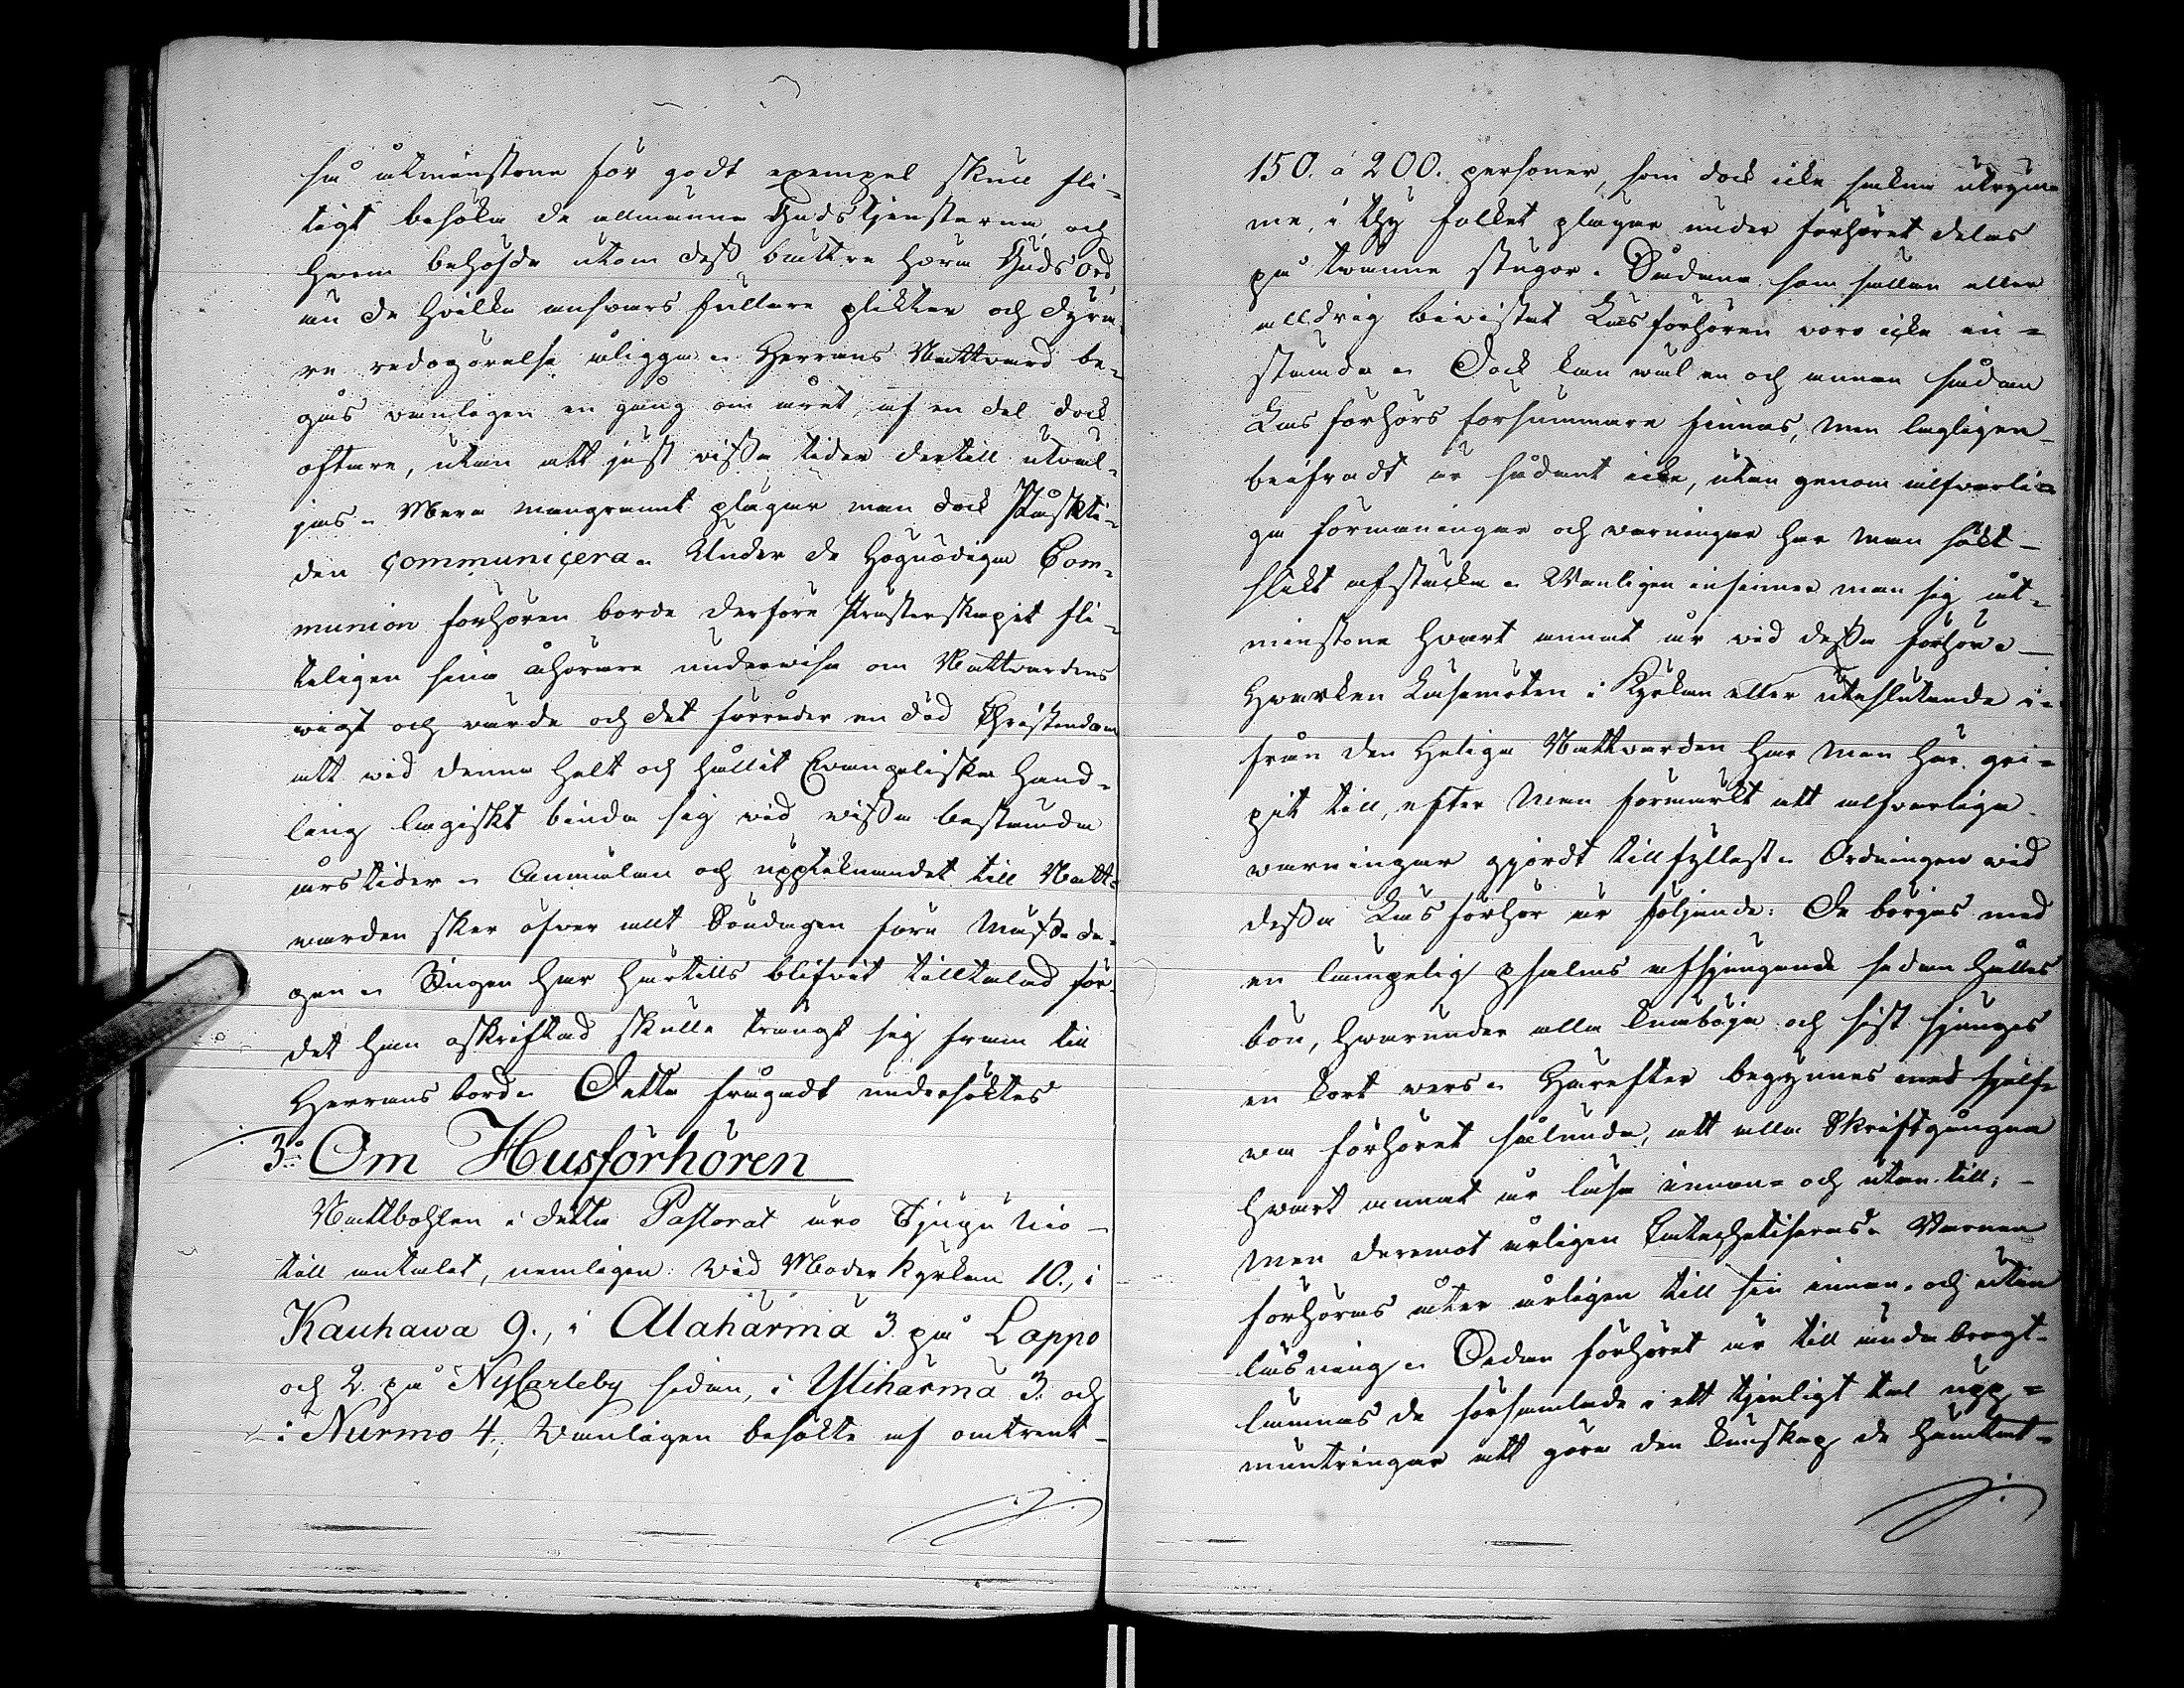 så åtminstone för godt exempel skull fli-
tigt besöka de allmänna Gudstjensterna, och
hvem behöfde utom dess bättre höra Guds Ord,
än de hvilka ansvarsfullare plikter och dyra-
re redogörelse åligga. Herrans Nattvard be-
gås vanligen en gång om året, af en del dock
oftare, utan att just vissa tider dertill utväl-
jas. Mera mangrannt plägar man dock Påskti-
den communicera. Under de högnödiga Com-
munion förhören borde derföre Presterskapet fli-
teligen sina åhörare underwisa om Nattvardens
wigt och wärde och det förråder en död Christendom
att wid denna helt och hållit Evangeliska hand-
ling lagiskt binda sig wid wissa bestämda
årstider. Anmälan och uppteknandet till Natt-
varden sker öfver allt Söndagen före Messo da-
gen. Ingen har härtills blifvit tilltalad för
det han oskriftad skulle trängt sig fram till
Herrans bord. Detta frågadt undersöktes
3:o Om Husförhören
Nattbohlen i detta Pastorat äro Tjugu nio
till antalet, nemligen: wid Moder kyrkan 10., i
Kauhawa 9., i Alahärmä 3. på Lappo
och 2. på NyCarleby sidan, i Ylihärmä 3. och
i Nurmo 4., Wanligen besökte af omkrent
150. à 200. personer, som dock icke sakna utrym-
me, i thy folket plägar under förhöret delas
på tvänne stugor. Sådana som sällan eller
alldrig bivistat Läsförhören voro icke ui-
stämda. Dock kan wäl en och annan sådan
Läsförhörs försummare finnas, men lagligen
beifradt är sådant icke, utan genom alfvarli-
ga förmaningar och varningar har man sökt
slikt afstäcka. Wanligen infinner man sig åt-
minstone hvart annat år vid dessa förhör.
Hvarken Läsemöten i Kyrkan eller uteslutande i-
från den Heliga Nattvarden har man här gri-
pit till, efter man förmärkt att alfvarliga
varningar gjordt tillfyllest. Ordningen wid
dessa Läsförhör är följande: De börjas med
en lämpelig psalms afsjungande sedan hålles
bön, hvarunder alla knäböja och sist sjunges
en kort wers. Härefter begynnes med sjelf-
va förhöret sålunda, att alla Skriftgångna
hvart annat år läsa innan- och utan till;
men deremot årligen Catechetiseras. Barnen
förhöras åter årligen till sin innan- och utan
läsning. Sedan förhöret är till ända bragt
lämnas de församlade i ett tjenligt tal upp-
muntringar att göra den kunskap de hämtat